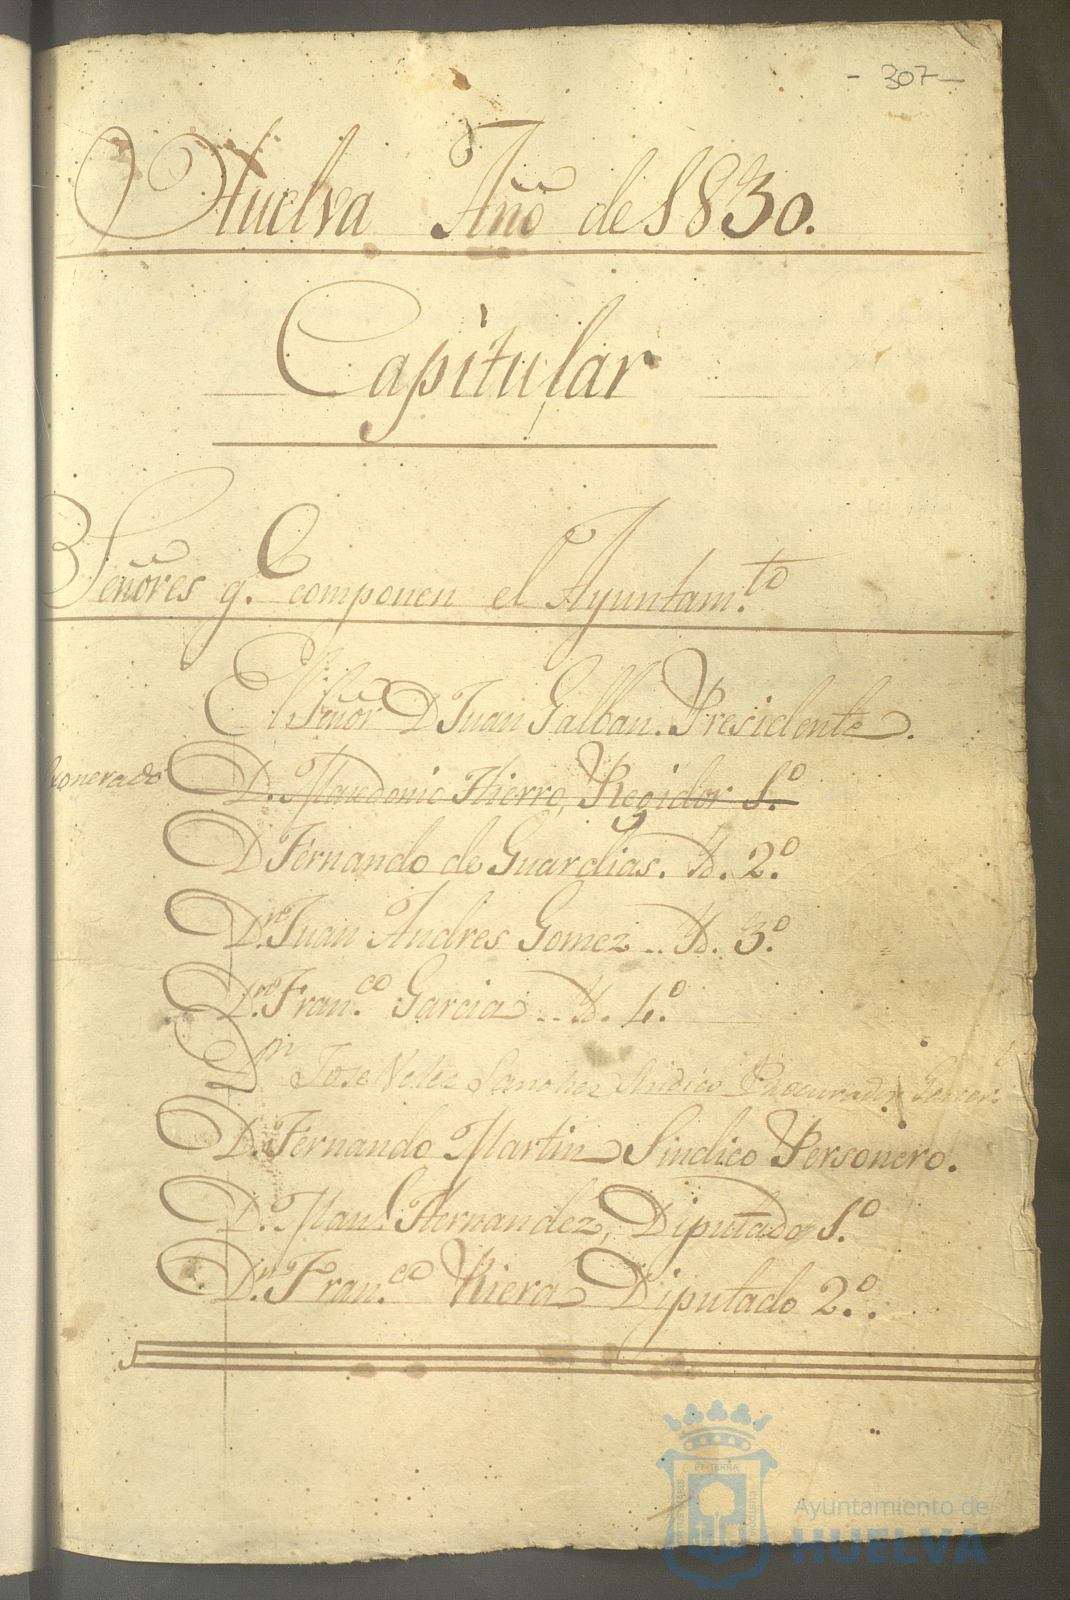 - 307 -
Huelva Año de 1830.
Capitular
Señores q.e componen el Ayuntam.to
El Señor D Juan Galban. Presidente.
D. Mardonio Hierro, Regidor 1.o
D Fernando de Guardias. Yd. 2.o
D.n Juan Andres Gomez .. Yd. 3.o
D.n Fran.co Garcia .. Yd. 4.o
D.n Jose Velez Sanchez Sindico Procurador
D. Fernando Martin Sindico Personero.
D. Man.l Hernandez, Diputado 1.o
D.n Fran.co Riera Diputado 2.o
Ayuntamiento de
HUELVA